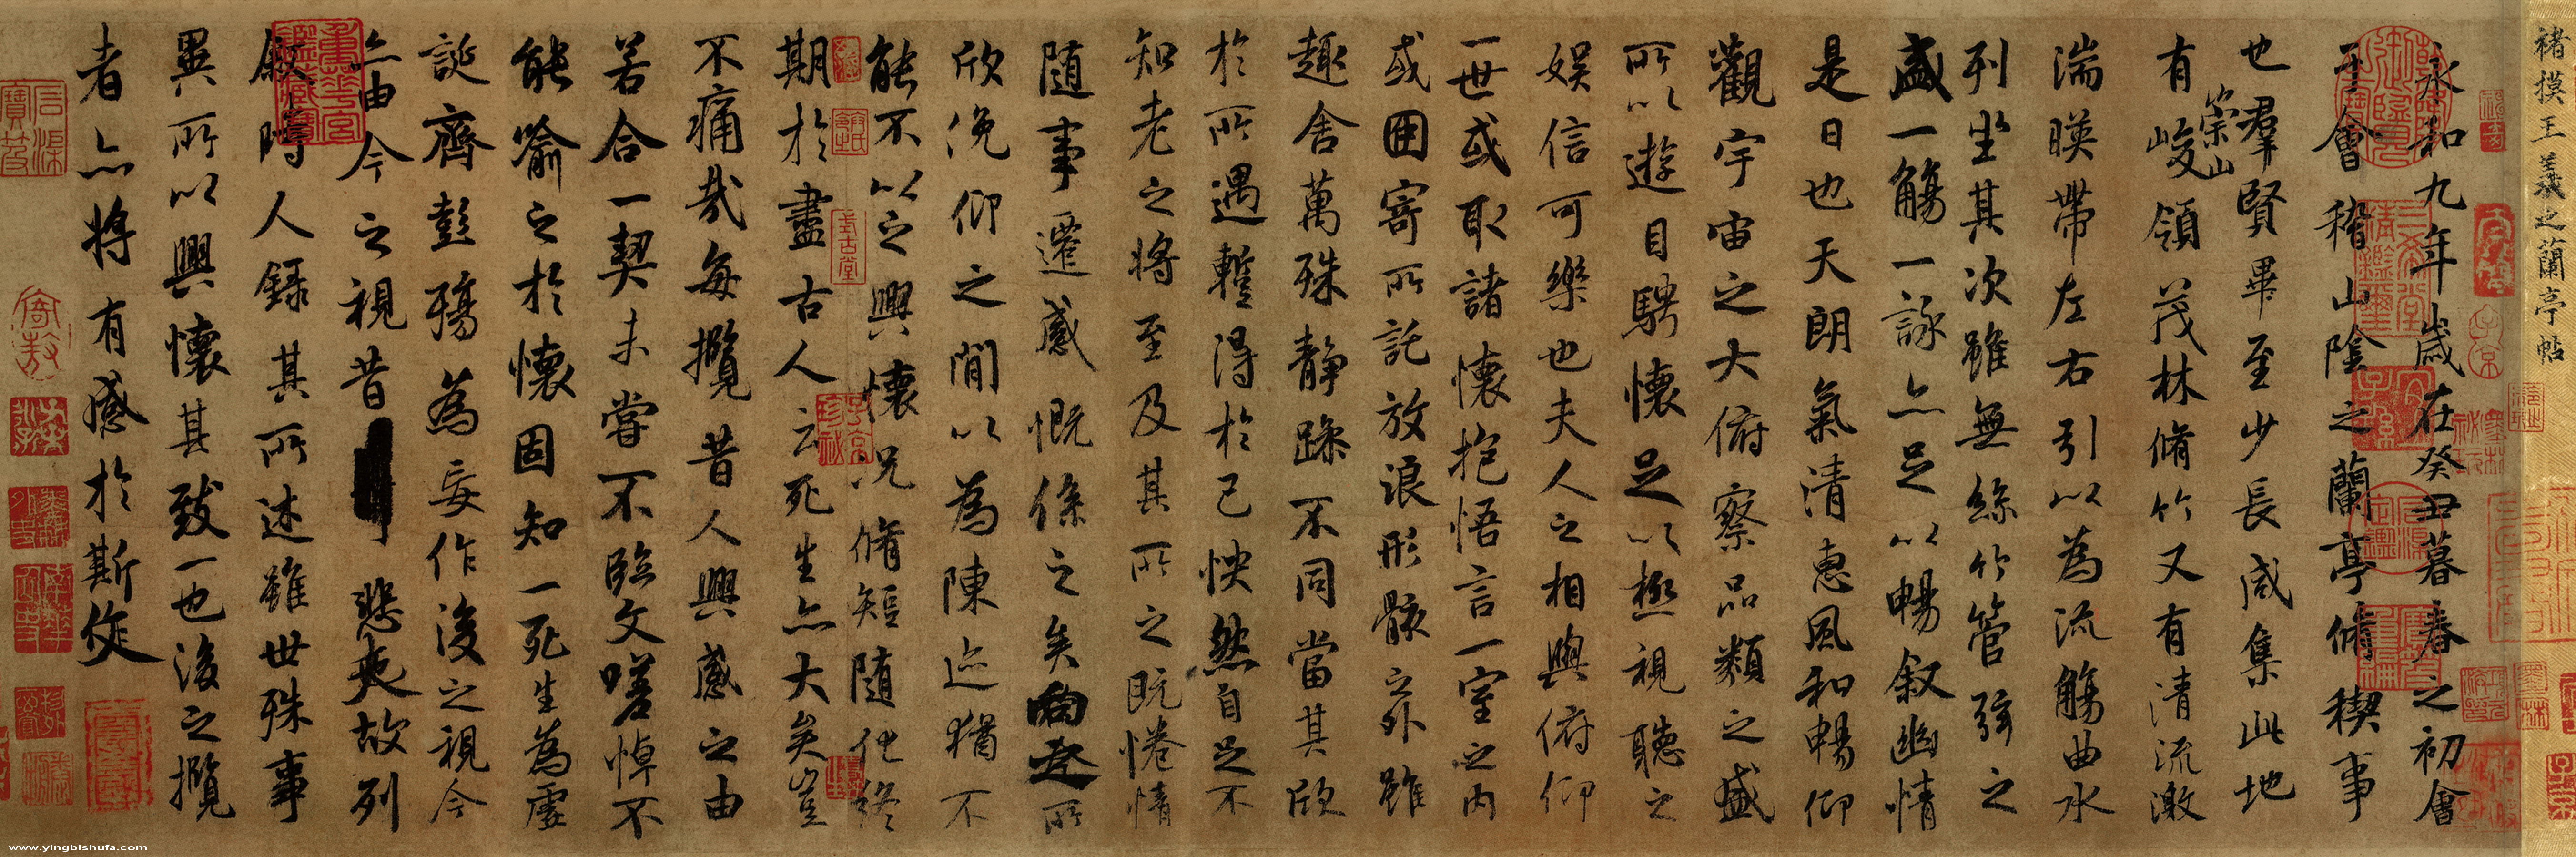 褚摸王羲之蘭亭帖
永和九年歲在癸丑暮春之初會
于會稽山陰之蘭亭脩稧事
也羣賢畢至少長咸集此地
有崇山峻領茂林脩竹又有清流激
湍暎帶左右引以為流觴曲水
列坐其次雖無絲竹管弦之
盛一觴一詠亦足以暢叙幽情
是日也天朗氣清惠風和暢仰
觀宇宙之大俯察品類之盛
所以遊目騁懷足以極視聽之
娛信可樂也夫人之相與俯仰
一世或取諸懷抱悟言一室之內
或因寄所託放浪形骸之外雖
趣舍萬殊靜躁不同當其欣
於所遇蹔得於己怏然自足不
知老之將至及其所之既惓情
隨事遷感慨係之矣向之所
欣俛仰之閒以為陳迹猶不
能不以之興懷況脩短隨化終
期於盡古人云死生亦大矣豈
不痛哉每攬昔人興感之由
若合一契未嘗不臨文嗟悼不
能喻之於懷固知一死生為虛
誕齊彭殤為妄作後之視今
亦由今之視昔悲夫故列
叙時人錄其所述雖世殊事
異所以興懷其致一也後之攬
者亦將有感於斯作
石渠寶笈
式古堂
www.yingbishufa.com